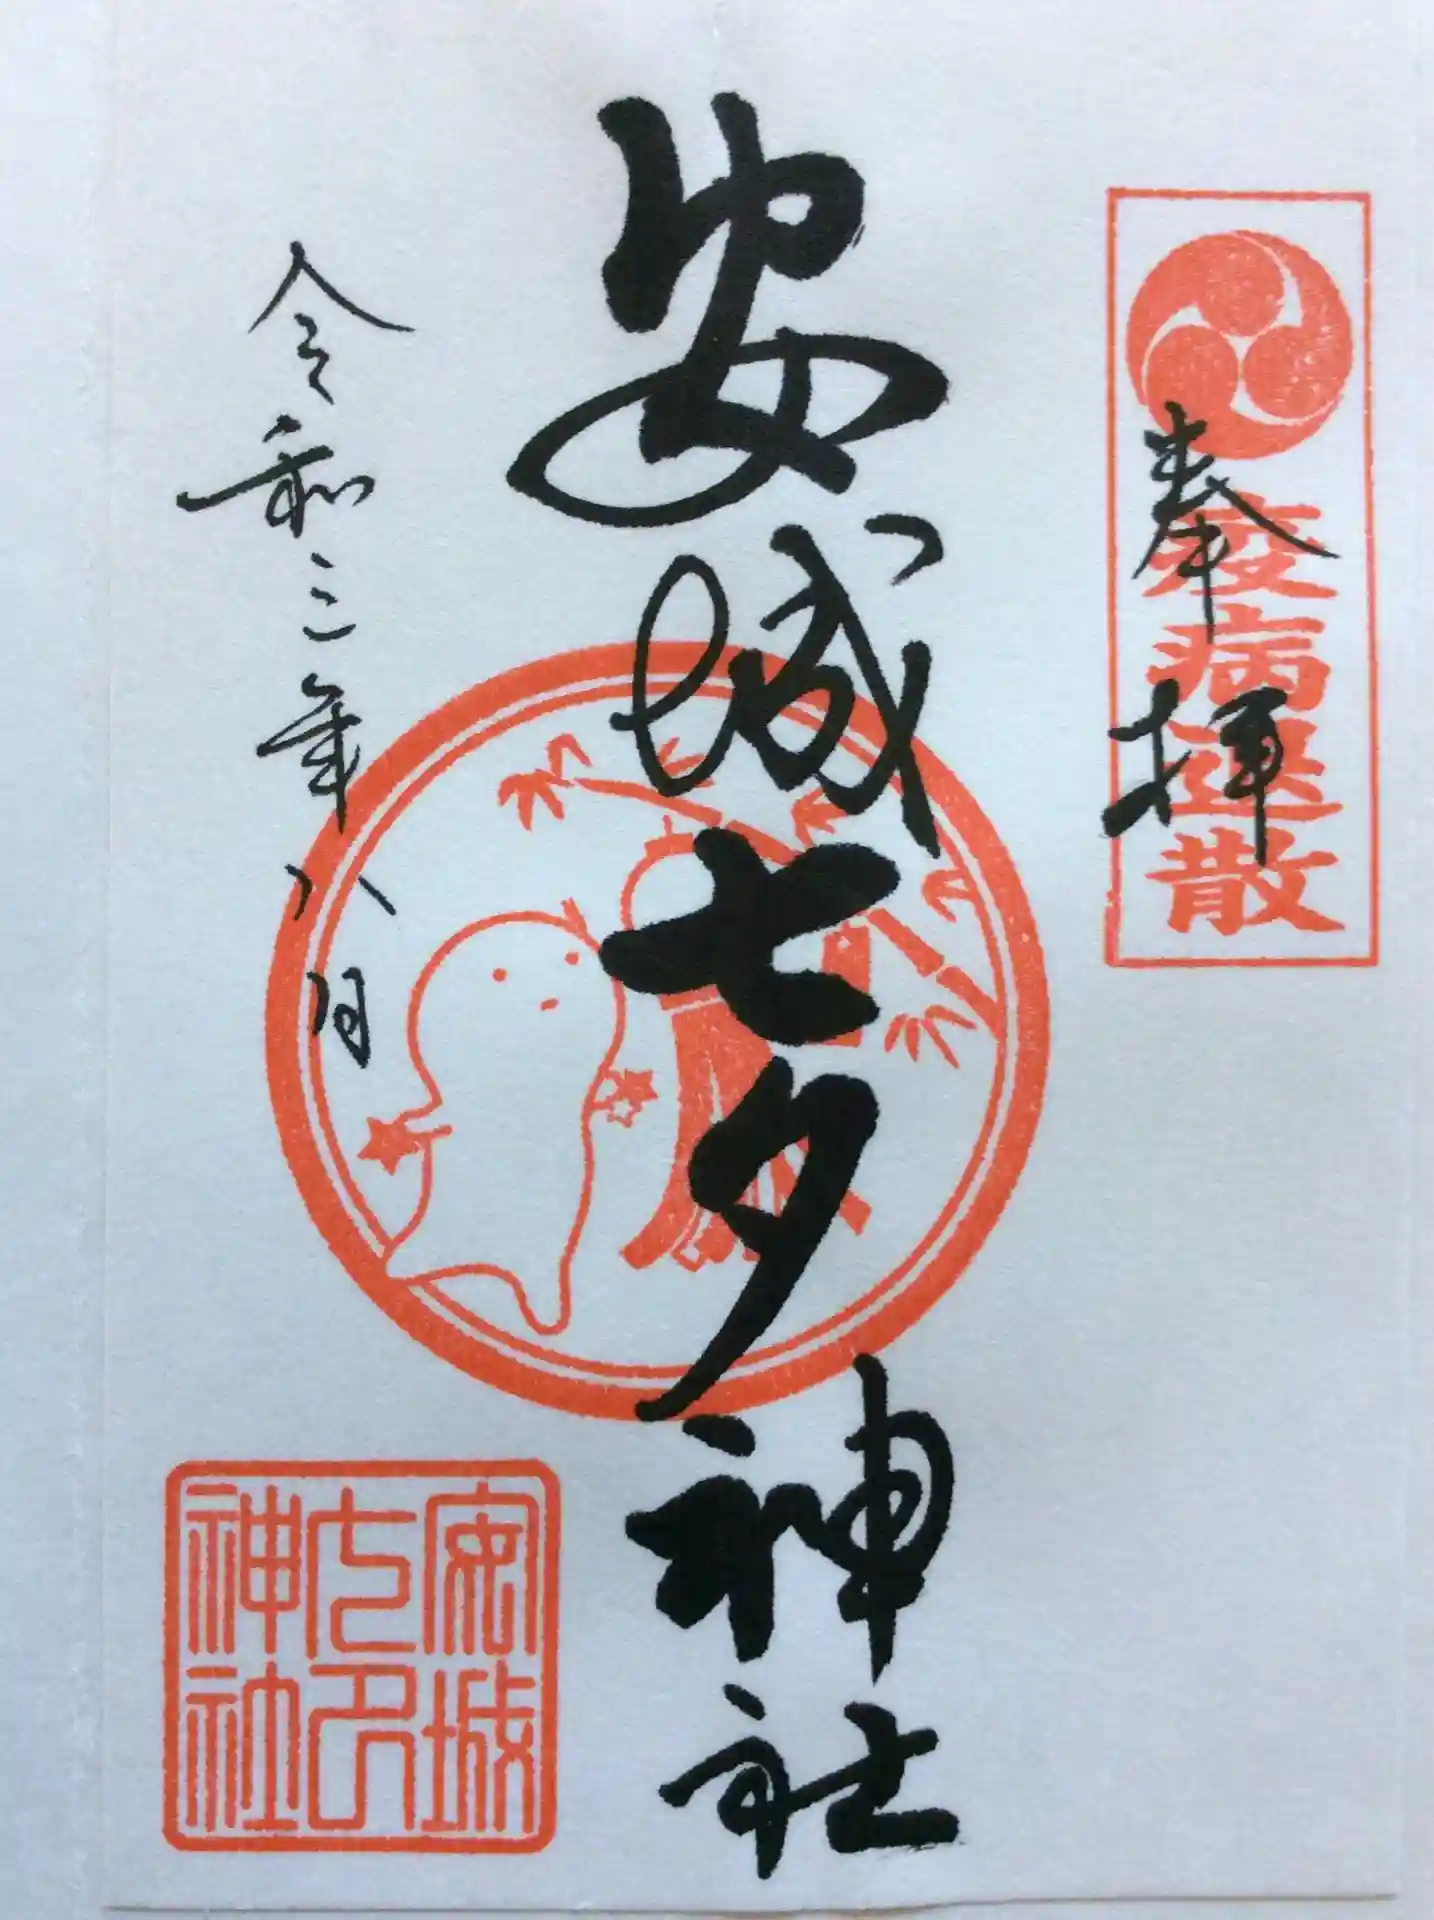 奉拝
疫病退散
安城七夕神社
令和三年八月
安城
七夕
神社